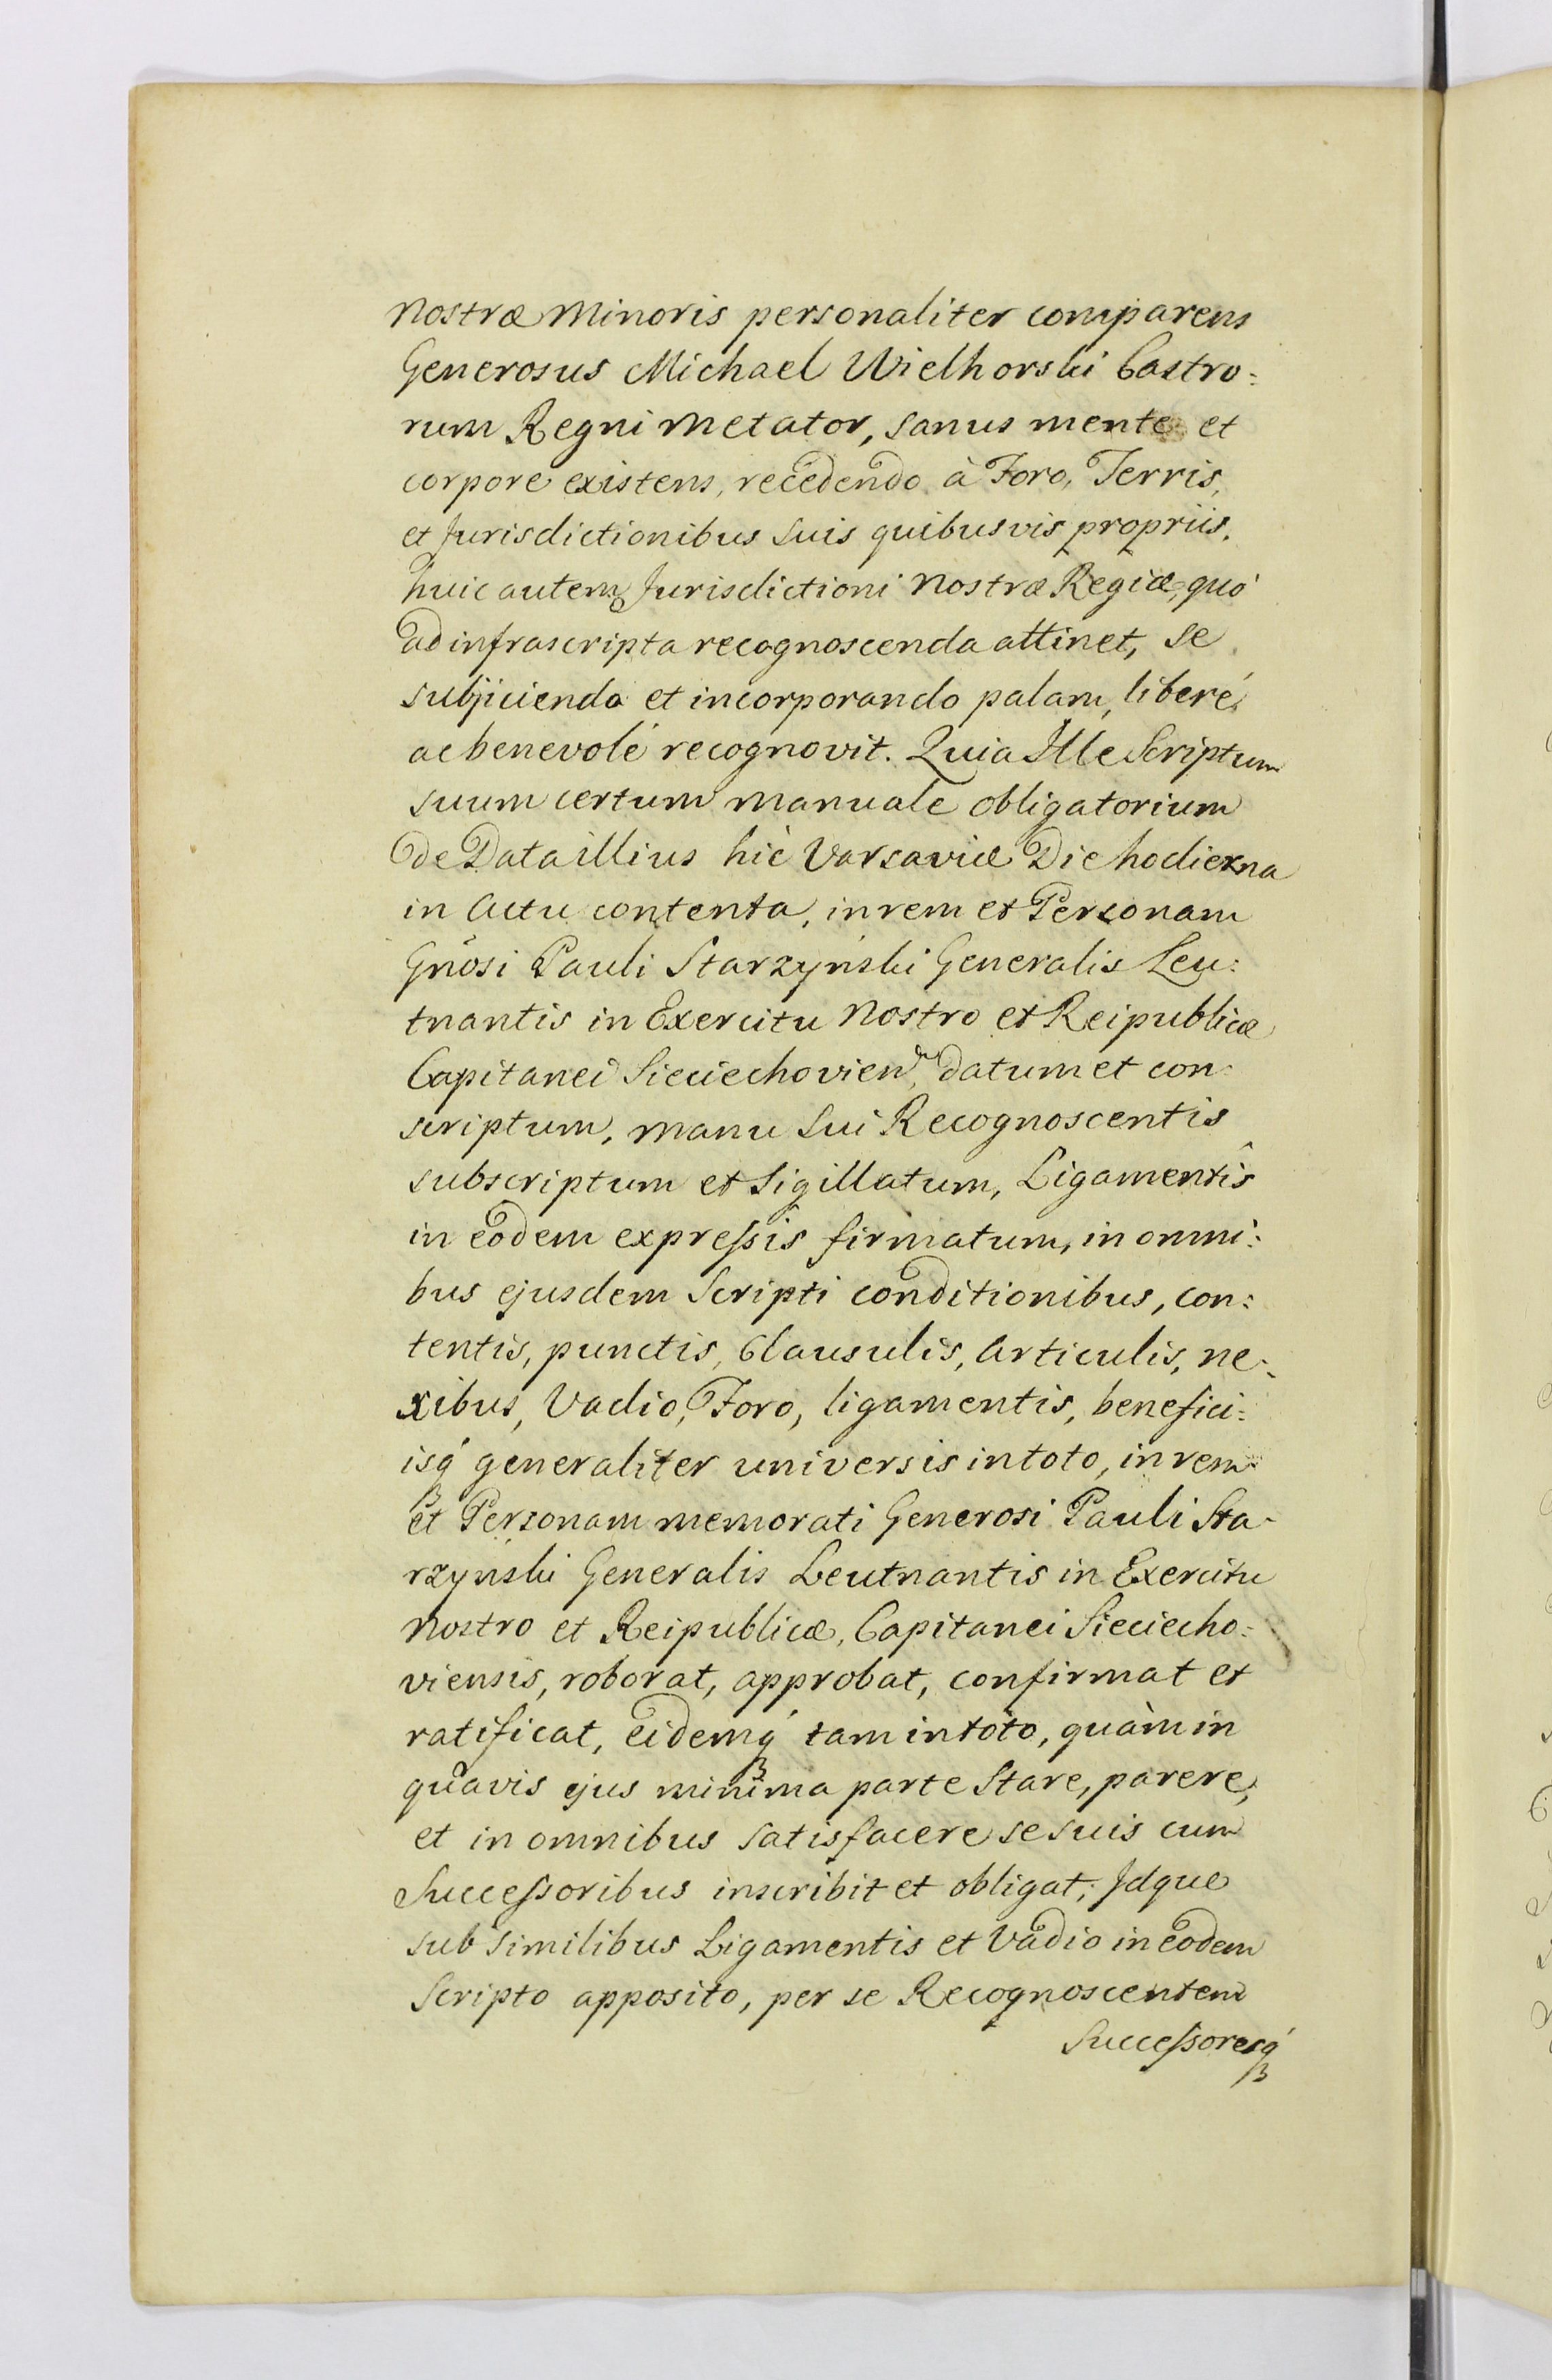 Nostræ Minoris personaliter comparens
Generosus Michael Wielhorski Castro:
rum Regni Metator, sanus mente et
corpore existens, recedendo à Foro, Terris,
et Jurisdictionibus suis quibusvis propriis,
huic autem Jurisdictioni Nostræ Regiæ, quò
ad infrascripta recognoscenda attinet, se
subjiciendo et incorporando palam, liberé,
ac benevolé recognovit. Quia Ille Scriptum
suum certum manuale obligatorium
de Data illius hic Varsaviæ Die hodierna
in Actu contenta, in rem et Personam
Gnõsi Pauli Starzyński Generalis Leu:
tnantis in Exercitu Nostro et Reipublicæ
Capitanei Sieciechovien, datum et con:
scriptum, manu sui Recognoscentis
subscriptum et sigillatum, Ligamentis
in eodem expreſsis firmatum, in omni:
bus ejusdem Scripti conditionibus, con:
tentis, punctis, Clausulis, Articulis, ne:
xibus, Vadio, Foro, ligamentis, benefici:
isq́ generaliter universis in toto, in rem
et Personam memorati Generosi Pauli Sta-
rzyński Generalis Leutnantis in Exercitu
Nostro et Reipublicæ, Capitanei Sieciecho:
viensis, roborat, approbat, confirmat et
ratificat, eidemq́ tam in toto, quàm in
quavis ejus minima parte stare, parere,
et in omnibus satisfacere se suis cum
Succeſsoribus inscribit et obligat; Idque
sub similibus Ligamentis et Vadio in eodem
Scripto apposito, per se Recognoscentem
Succeſsoresq́